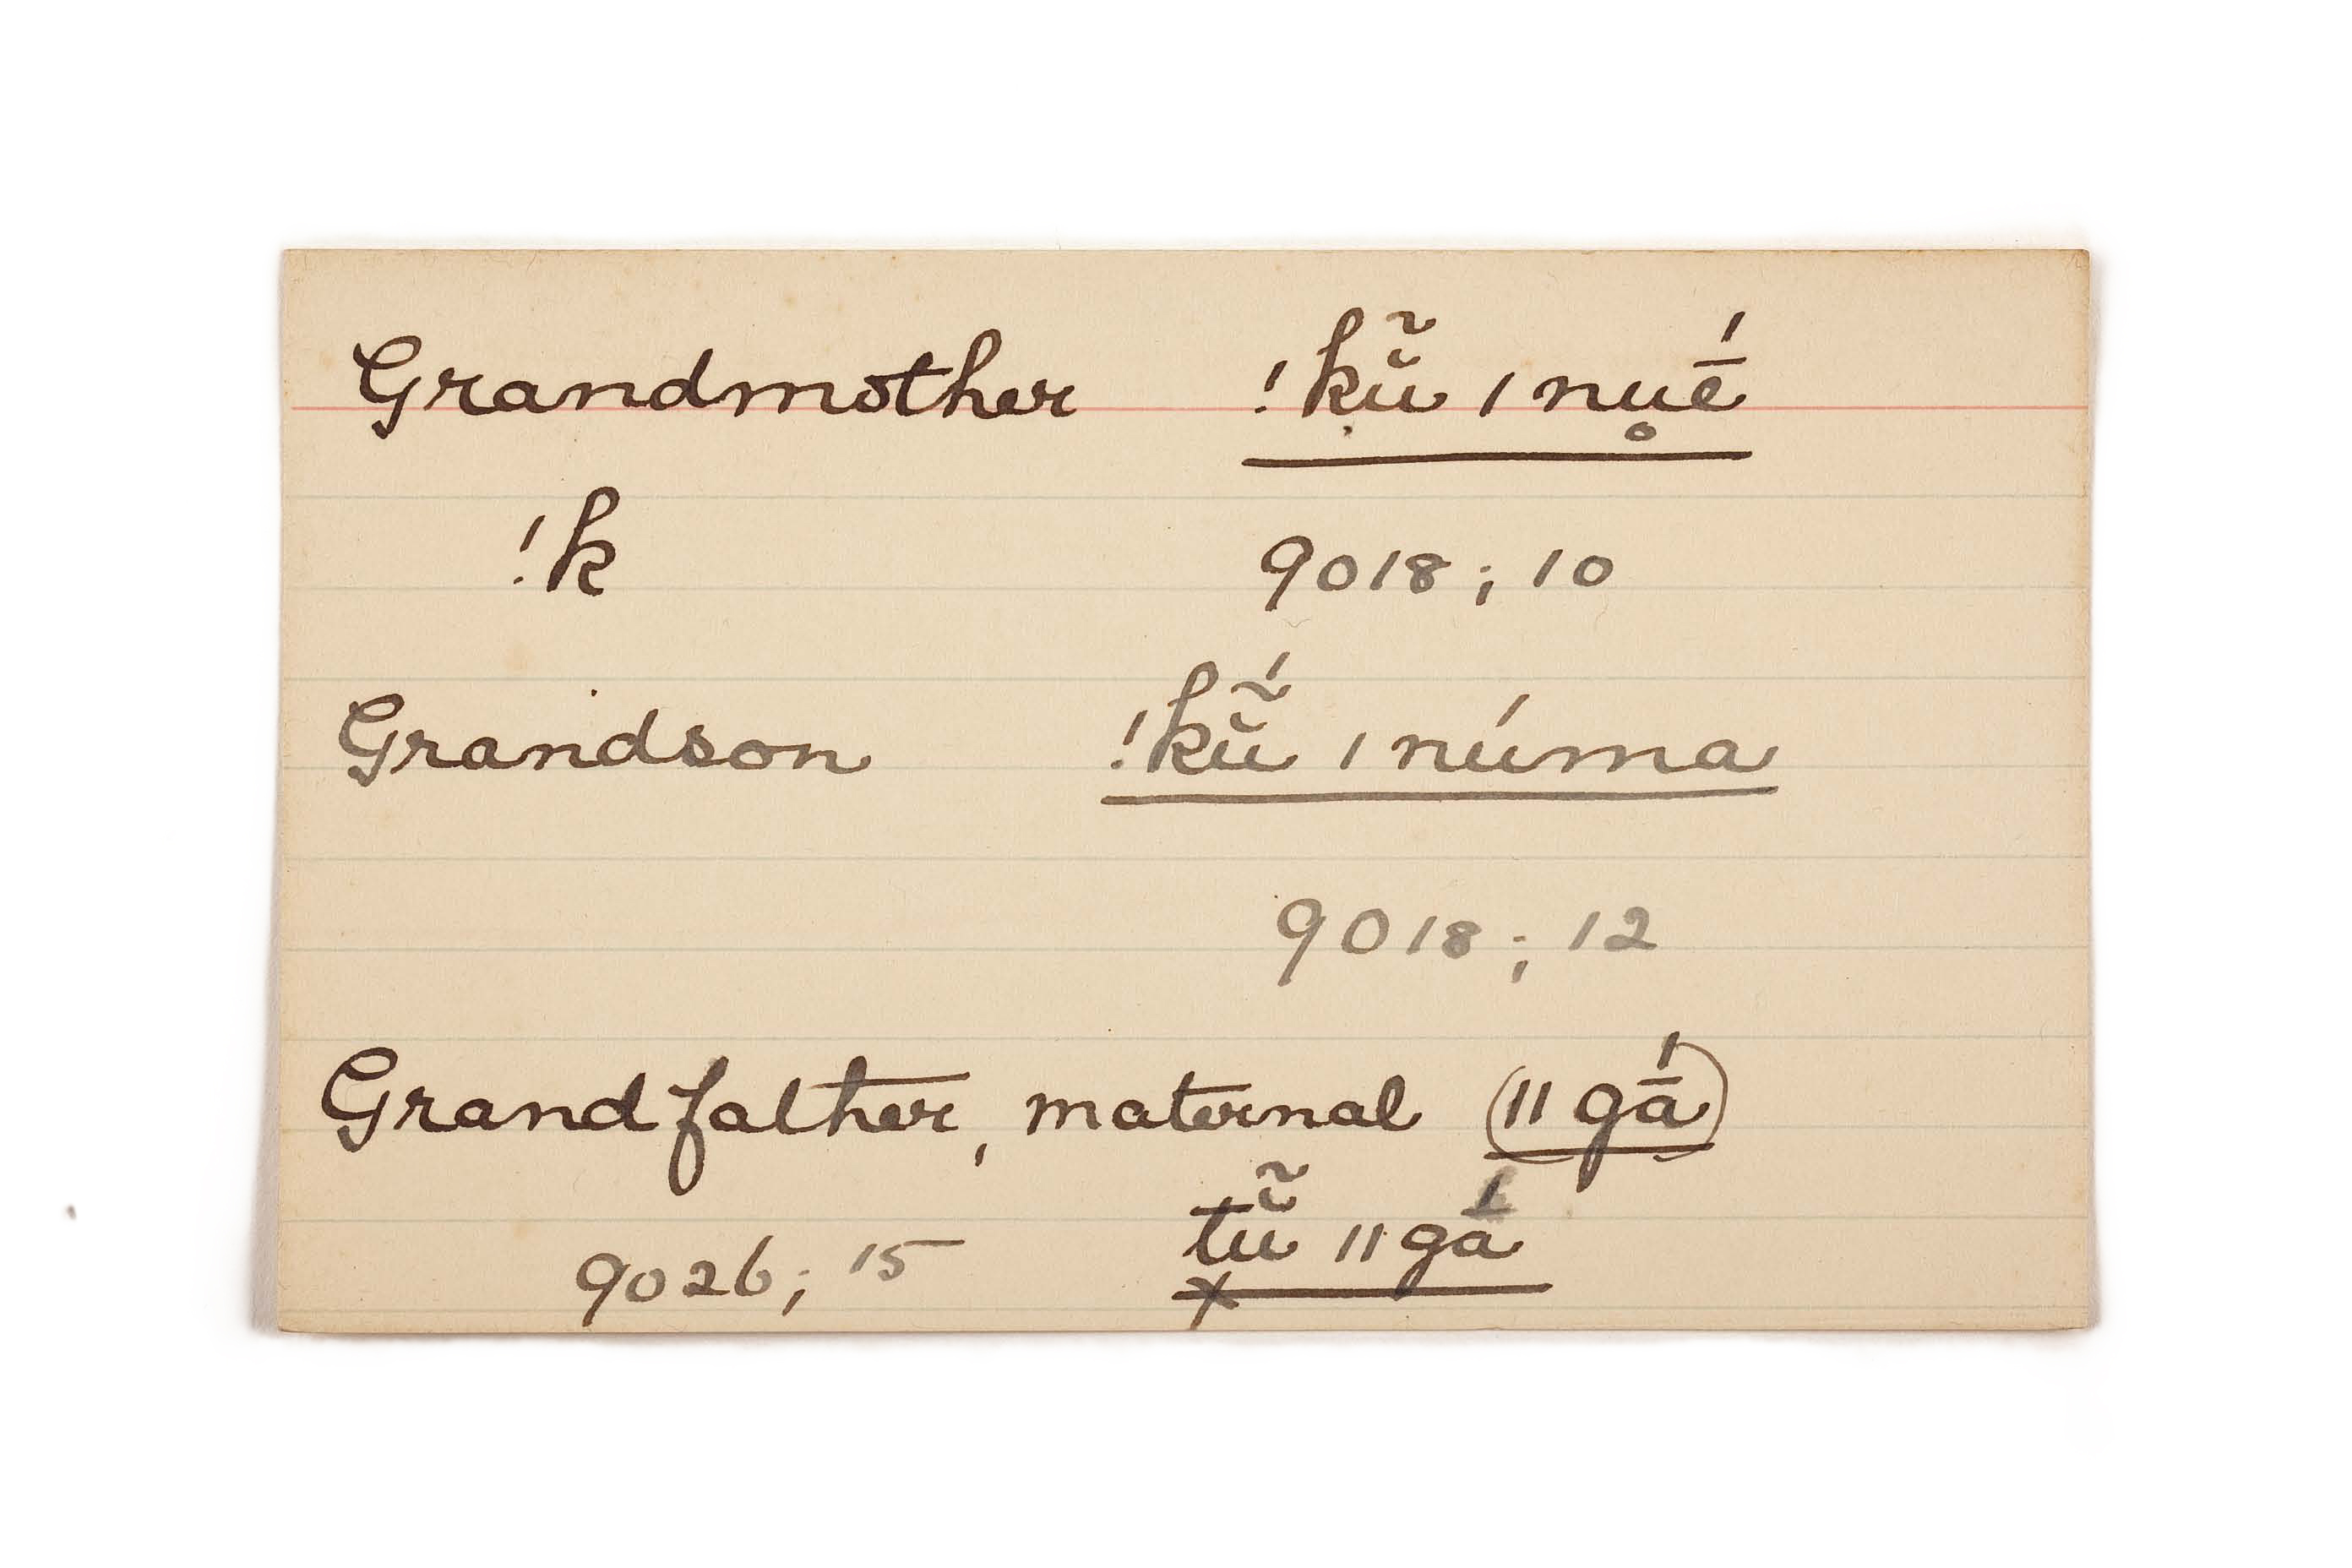 Grandmother !kŭ̃ ǀnu̥ḗ
!k 9018; 10
Grandson !kŭ̃́ ǀnúma
9018; 12
Grandfather, maternal (ǁgā́)
tŭ̃ ǁgā́
9026; 15 x